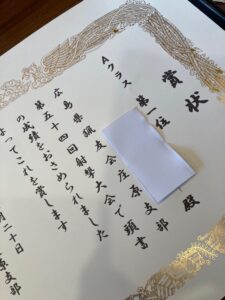 賞状
Aクラス
第一位
殿
広島県猟友会庄原支部
第五十四回射撃大会で頭書
の成績をおさめられました
よってこれを賞します
月二十日
原支部